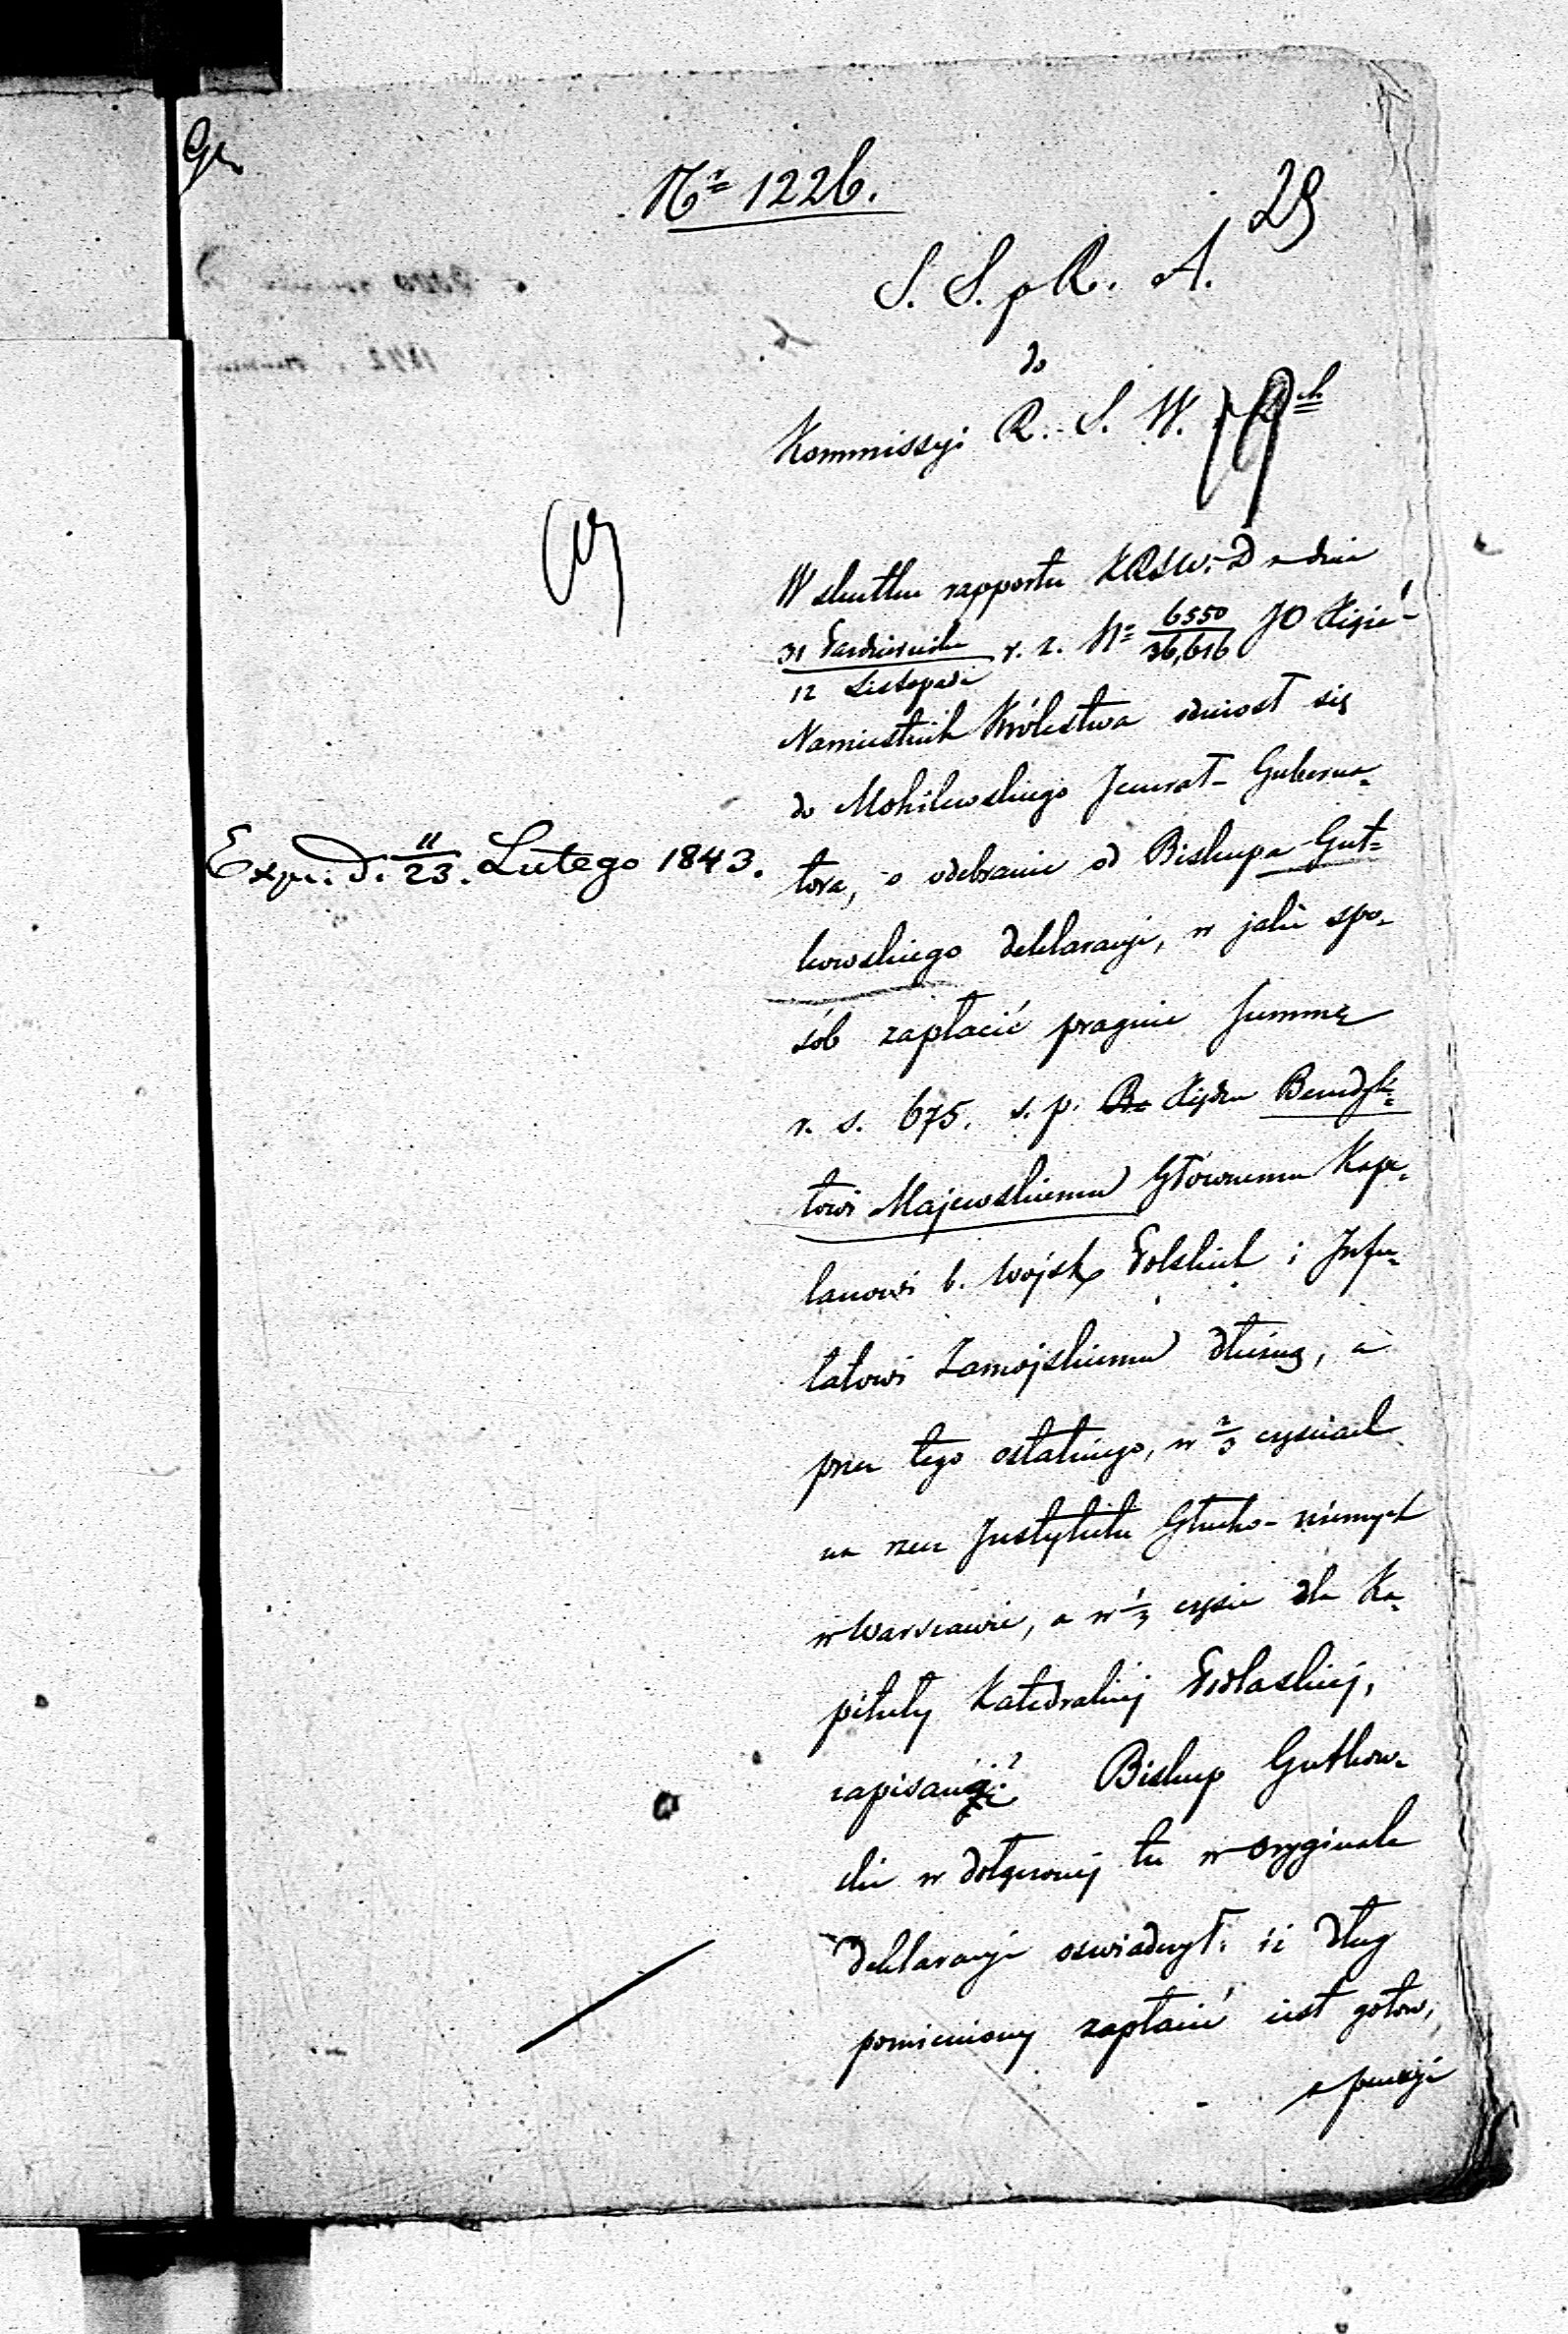 Nr 1226.
29
S. S. p R. A.
do
Kommissyi R. S. W.
W skutku rapportu KRSW. D z dnia
31 Października / 12 Listopada r. z. Nr 6550/36,616 JO Xiąże
Namiestnik Królestwa odniosł się
do Mohilewskiego Jenerał-Guberna-
tora, o odebranie od Biskupa Gut-
kowskiego deklaracyi, w jaki spo-
sób zapłacić pragnie summę
r. s. 675. s. p. Xiędzu Benedyk-
towi Majewskiemu Głównemu Kape-
lanowi b. Wojsk Polskich i Infu-
łatowi Zamojskiemu dłużną, a
przez tego ostatniego, w 2/3 częściach
na rzecz Instytutu Głucho-niemych
w Warszawie, a w 1/3 części dla Ka-
pituły Katedralnej Podlaskiej,
zapisaną? Biskup Gutkow-
ski w dołączonej tu w oryginale
deklaracyi oświadczył: iż dług
pomieniony zapłacić jest gotow,
z pensyi
Exp. d. 11/23. Lutego 1843.